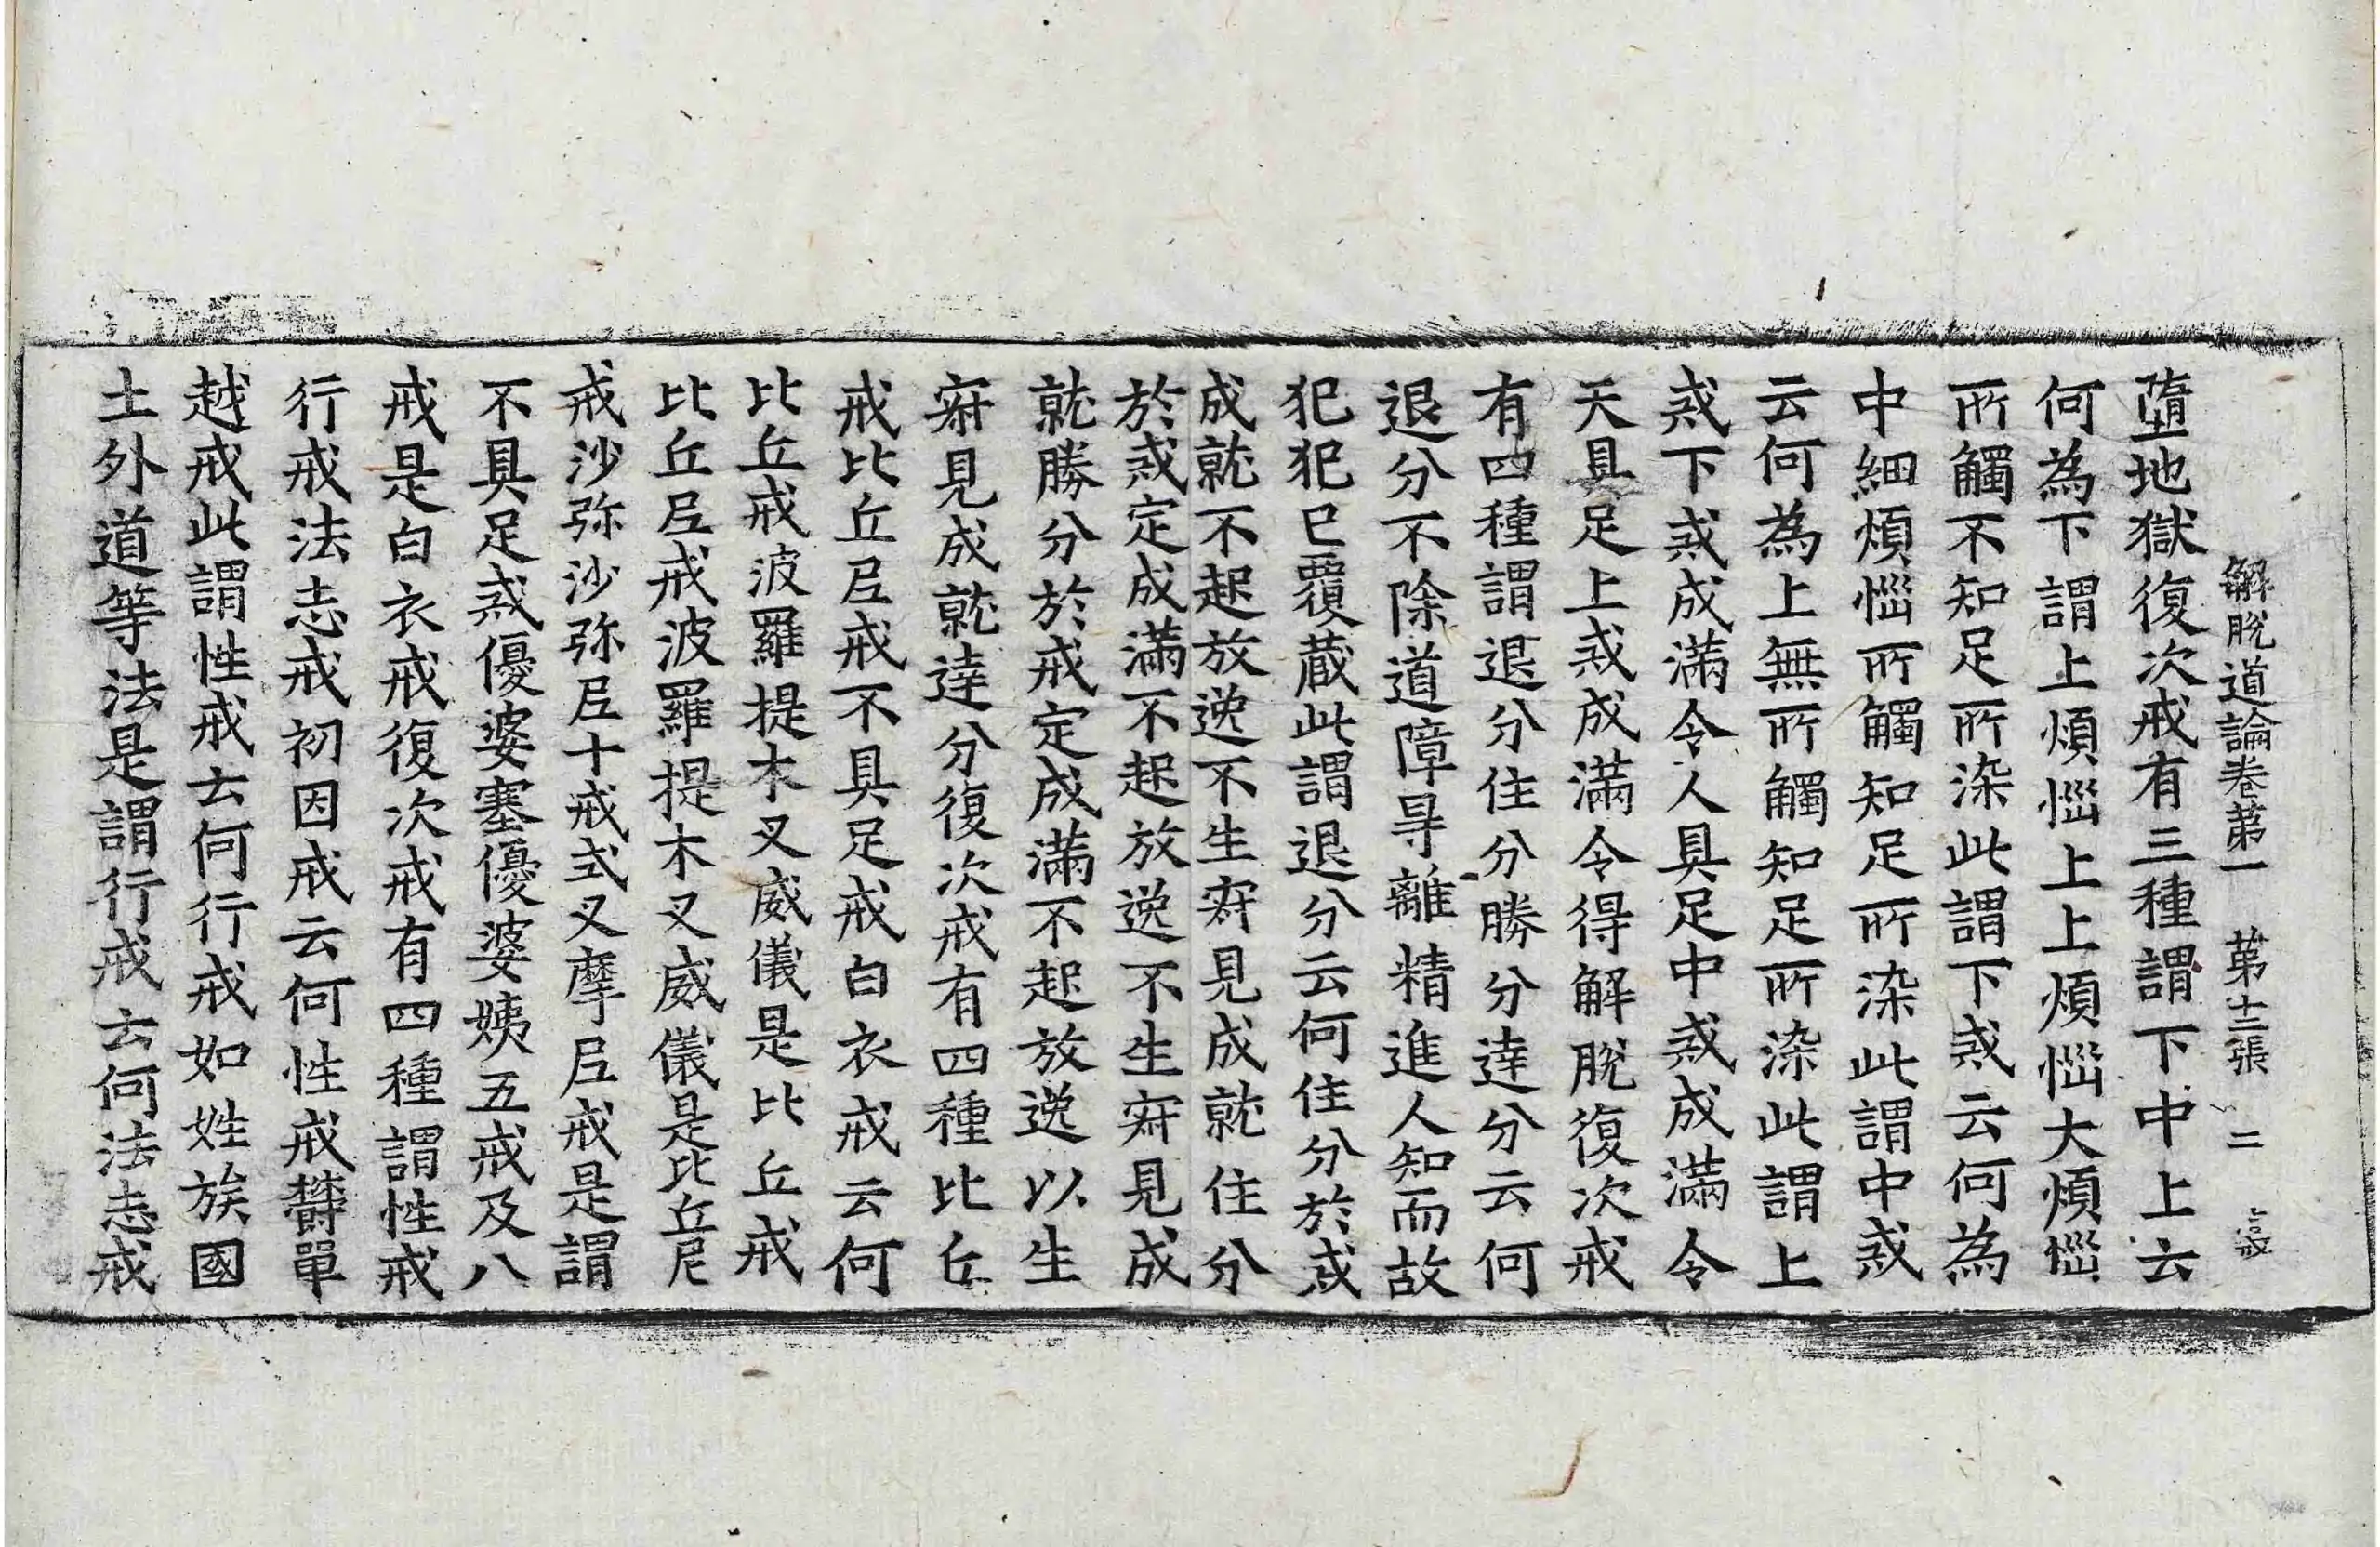 解脫道論卷苐一　苐十三張　二
墮地獄復次戒有三種謂下中上云
何為下謂上煩惱上上煩惱大煩惱
所觸不知足所染此謂下戒云何為
中細煩惱所觸知足所染此謂中戒
云何為上無所觸知足所染此謂上
戒下戒成滿令人具足中戒成滿令
天具足上戒成滿令得解脫復次戒
有四種謂退分住分勝分達分云何
退分不除道障㝵離精進人知而故
犯犯已覆蔵此謂退分云何住分於戒
成就不起放逸不生㝛見成就住分
於戒定成滿不起放逸不生㝛見成
就勝分於戒定成滿不起放逸以生
㝛見成就達分復次戒有四種比丘
戒比丘尼戒不具足戒白衣戒云何
比丘戒波羅提木叉威儀是比丘戒
比丘尼戒波羅提木叉威儀是比丘尼
戒沙弥沙弥尼十戒式叉摩尼戒是謂
不具足戒優婆塞優婆姨五戒及八
戒是白衣戒復次戒有四種謂性戒
行戒法志戒初因戒云何性戒欝單
越戒此謂性戒云何行戒如姓族國
土外道等法是謂行戒云何法志戒